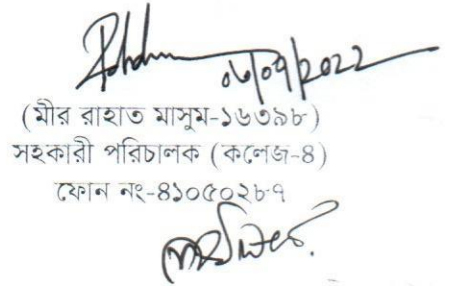 ০৬/০৭/২০২২
(মীর রাহাত মাসুম-১৬৩৯৮)
সহকারী পরিচালক (কলেজ-৪)
ফোন নং-৪১০৫০২৮৭